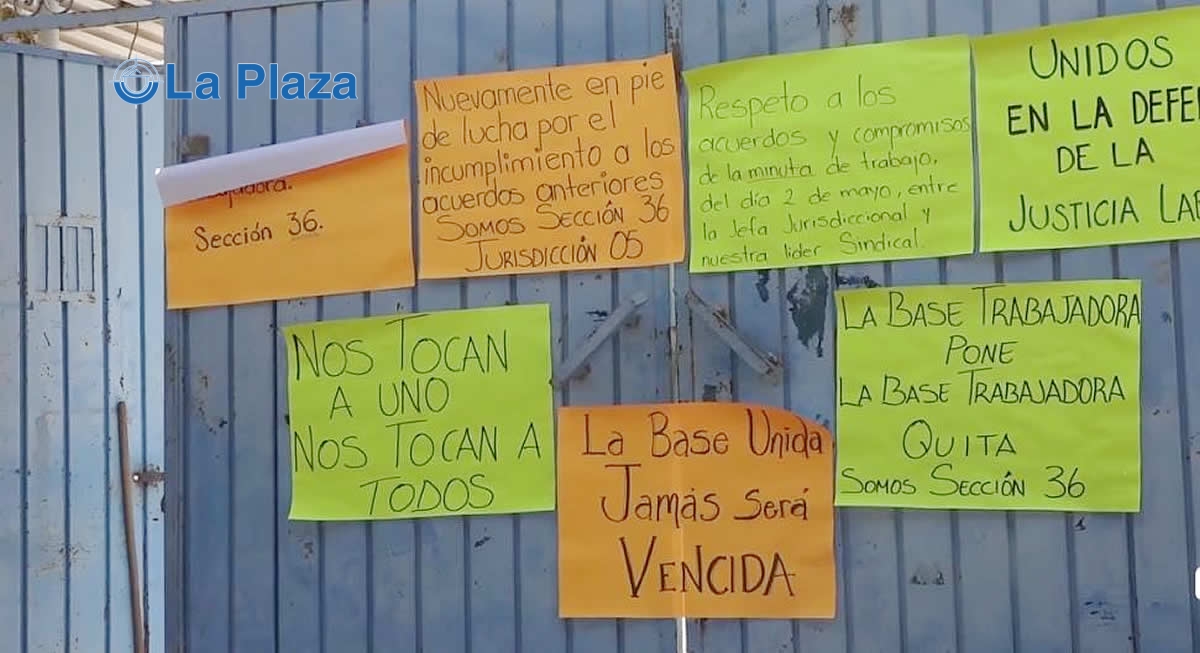 La Plaza
Sección 36.
Nuevamente en pie
de lucha por el
incumplimiento a los
acuerdos anteriores
Somos Sección 36
Jurisdicción 05
Respeto a los
acuerdos y compromisos
de la minuta de trabajo,
del día 2 de mayo, entre
la Jefa Jurisdiccional y
nuestra lider Sindical.
UNIDOS
EN LA DEFE
DE LA
JUSTICIA LA
NOS TOCAN
A UNO
NOS TOCAN A
TODOS
La Base Unida
Jamás Será
VENCIDA
LA BASE TRABAJADORA
PONE
LA BASE TRABAJADORA
QUITA
SOMOS SECCIÓN 36